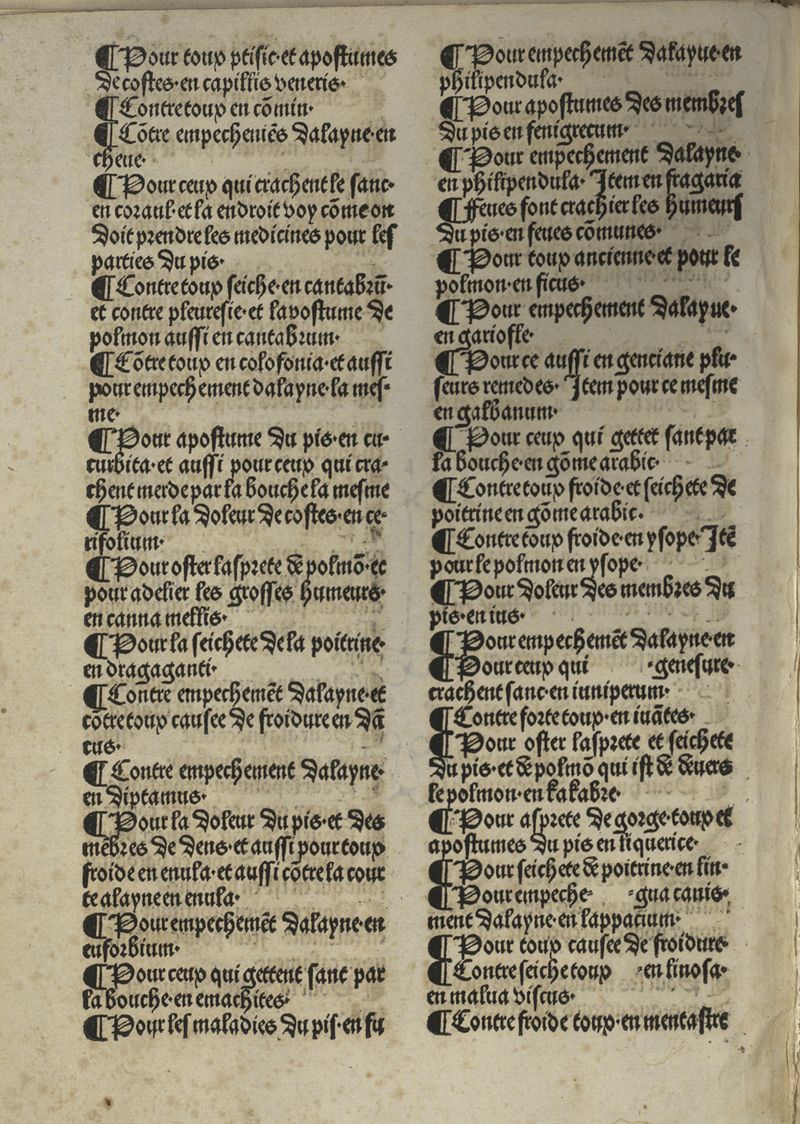 ¶Pour toux ptisic·et apostumes
de costes·en capillis veneris·
¶Contre toux en cõmin·
¶Cõtre empechemẽs dalayne·en
cheue·
¶Pour ceux qui crachent le sanc·
en coraul·et la endroit voy cõme on
doit prendre les medicines pour les
parties du pis·
¶Contre toux seiche·en cantabrũ·
et contre pleuresie·et lapostume de
polmon aussi en cantabrum·
¶Cõtre toux en colofonia·et aussi
pour empechement dalayne·la mes-
me·
¶Pour apostume du pis·en cu-
curbita·et aussi pour ceux qui cra-
chent merde par la bouche la mesme
¶Pour la doleur de costes·en ce-
rifolium·
¶Pour oster lasprete de polmõ·et
pour adelier les grosses humeurs·
en canna mellis·
¶Pour la seichete de la poitrine·
en dragaganti·
¶Contre empechemẽt dalayne·et
cõtre toux causee de froidure en dã
cus·
¶Contre empechement dalayne·
en diptamus·
¶Pour la doleur du pis·et des
mẽbres de dens·et aussi pour toux
froide en enula·et aussi cõtre la cour
te alayne en enula·
¶Pour empechemẽt dalayne·en
euforbium·
¶Pour ceux qui gettent sant par
la bouche·en emachites·
¶Pour les maladies du pis·en fu
¶Pour empechemẽt dalayne·en
philipendula·
¶Pour apostumes des membres
du pis en fenigrecum·
¶Pour empechement dalayne·
en philipendula· Item en fragaria
¶ffeues font crachier les humeurs
du pis·en feues cõmunes·
¶Pour toux ancienne·et pour le
polmon·en ficus·
¶Pour empechement dalayne·
en garioffe·
¶Pour ce aussi en genciane plu-
seurs remedes· Item pour ce mesme
en galbanum·
¶Pour ceux qui gettet sant par
la bouche·en gõme arabic·
¶Contre toux froide·et seichete de
poitrine en gõme arabic·
¶Contre toux froide·en ysope·Itẽ
pour le polmon en ysope·
¶Pour doleur des membres du
pis·en ius·
¶Pour empechemẽt dalayne·en
¶Pour ceux qui ·genesure·
crachent sanc·en iuniperum·
¶Contre forte toux·en iuãtes·
¶Pour oster lasprete et seichete
du pis·et de polmõ qui ist de deuers
le polmon·en kakabre·
¶Pour asprete de gorge·toux et
apostumes du pis en liquerice·
¶Pour seichete de poitrine·en lin-
¶Pour empeche- ·gua canis·
ment dalayne·en lappacium·
¶Pour toux causee de froidure·
¶Contre seiche toux ·en linosa·
en malua viscus·
¶Contre froide toux·en mentastre